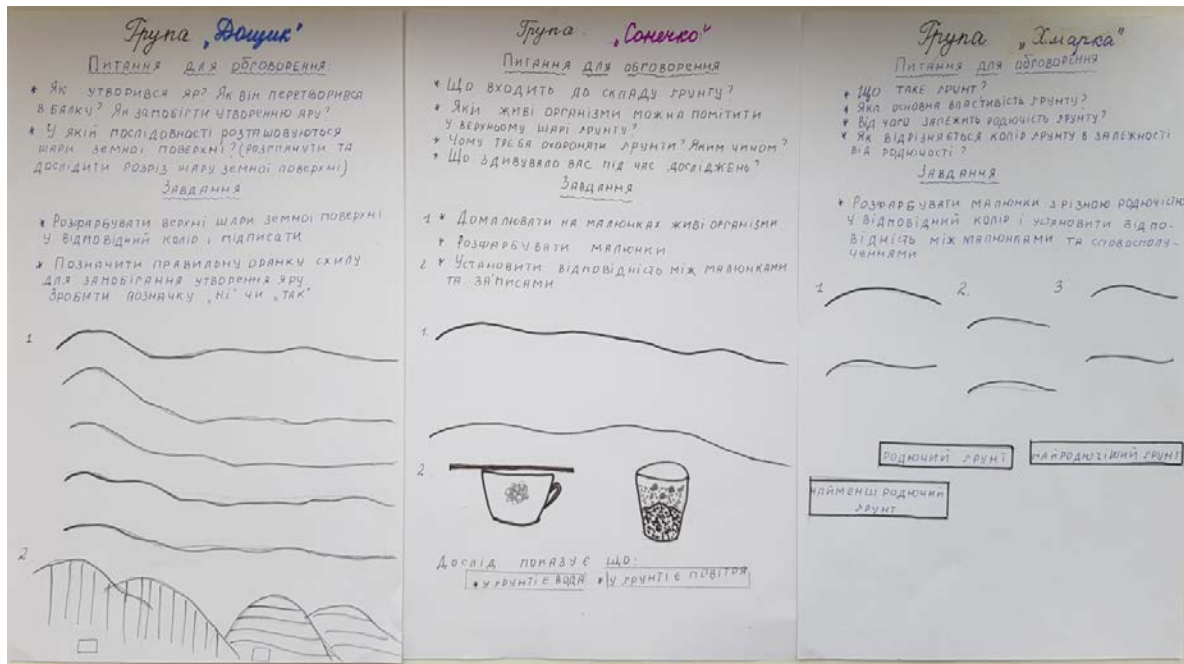 Група „Дощик"
Питання для обговорення:
* Як утворився яр? Як він перетворився
в балку? Як запобігти утворенню яру?
* У якій послідовності розташовуються
шари земної поверхні? (розглянути та
дослідити розріз шару земної поверхні)
Завдання
* Розфарбувати верхні шари земної поверхні
у відповідний колір і підписати
* Позначити правильну оранку схилу
для запобігання утворення яру
Зробити позначку „ні" чи „так"
1
2
Група „Сонечко"
Питання для обговорення
* Що входить до складу ґрунту?
* Які живі організми можна помітити
у верхньому шарі ґрунту?
* Чому треба охороняти ґрунти? Яким чином?
* Що здивувало вас під час досліджень?
Завдання
1 * Домалювати на малюнках живі організми
* Розфарбувати малюнки
2 * Установити відповідність між малюнками
та записами
1.
2.
Дослід показує що:
* у ґрунті є вода * у ґрунті є повітря
Група „Хмарка"
Питання для обговорення
* Що таке ґрунт?
* Яка основна властивість ґрунту?
* Від чого залежить родючість ґрунту?
* Як відрізняється колір ґрунту в залежності
від родючості?
Завдання
* Розфарбувати малюнки з різною родючістю
у відповідний колір і установити відпо-
відність між малюнками та словосполу-
ченнями
1 2. 3
родючий ґрунт
найродючіший ґрунт
найменш родючий
ґрунт